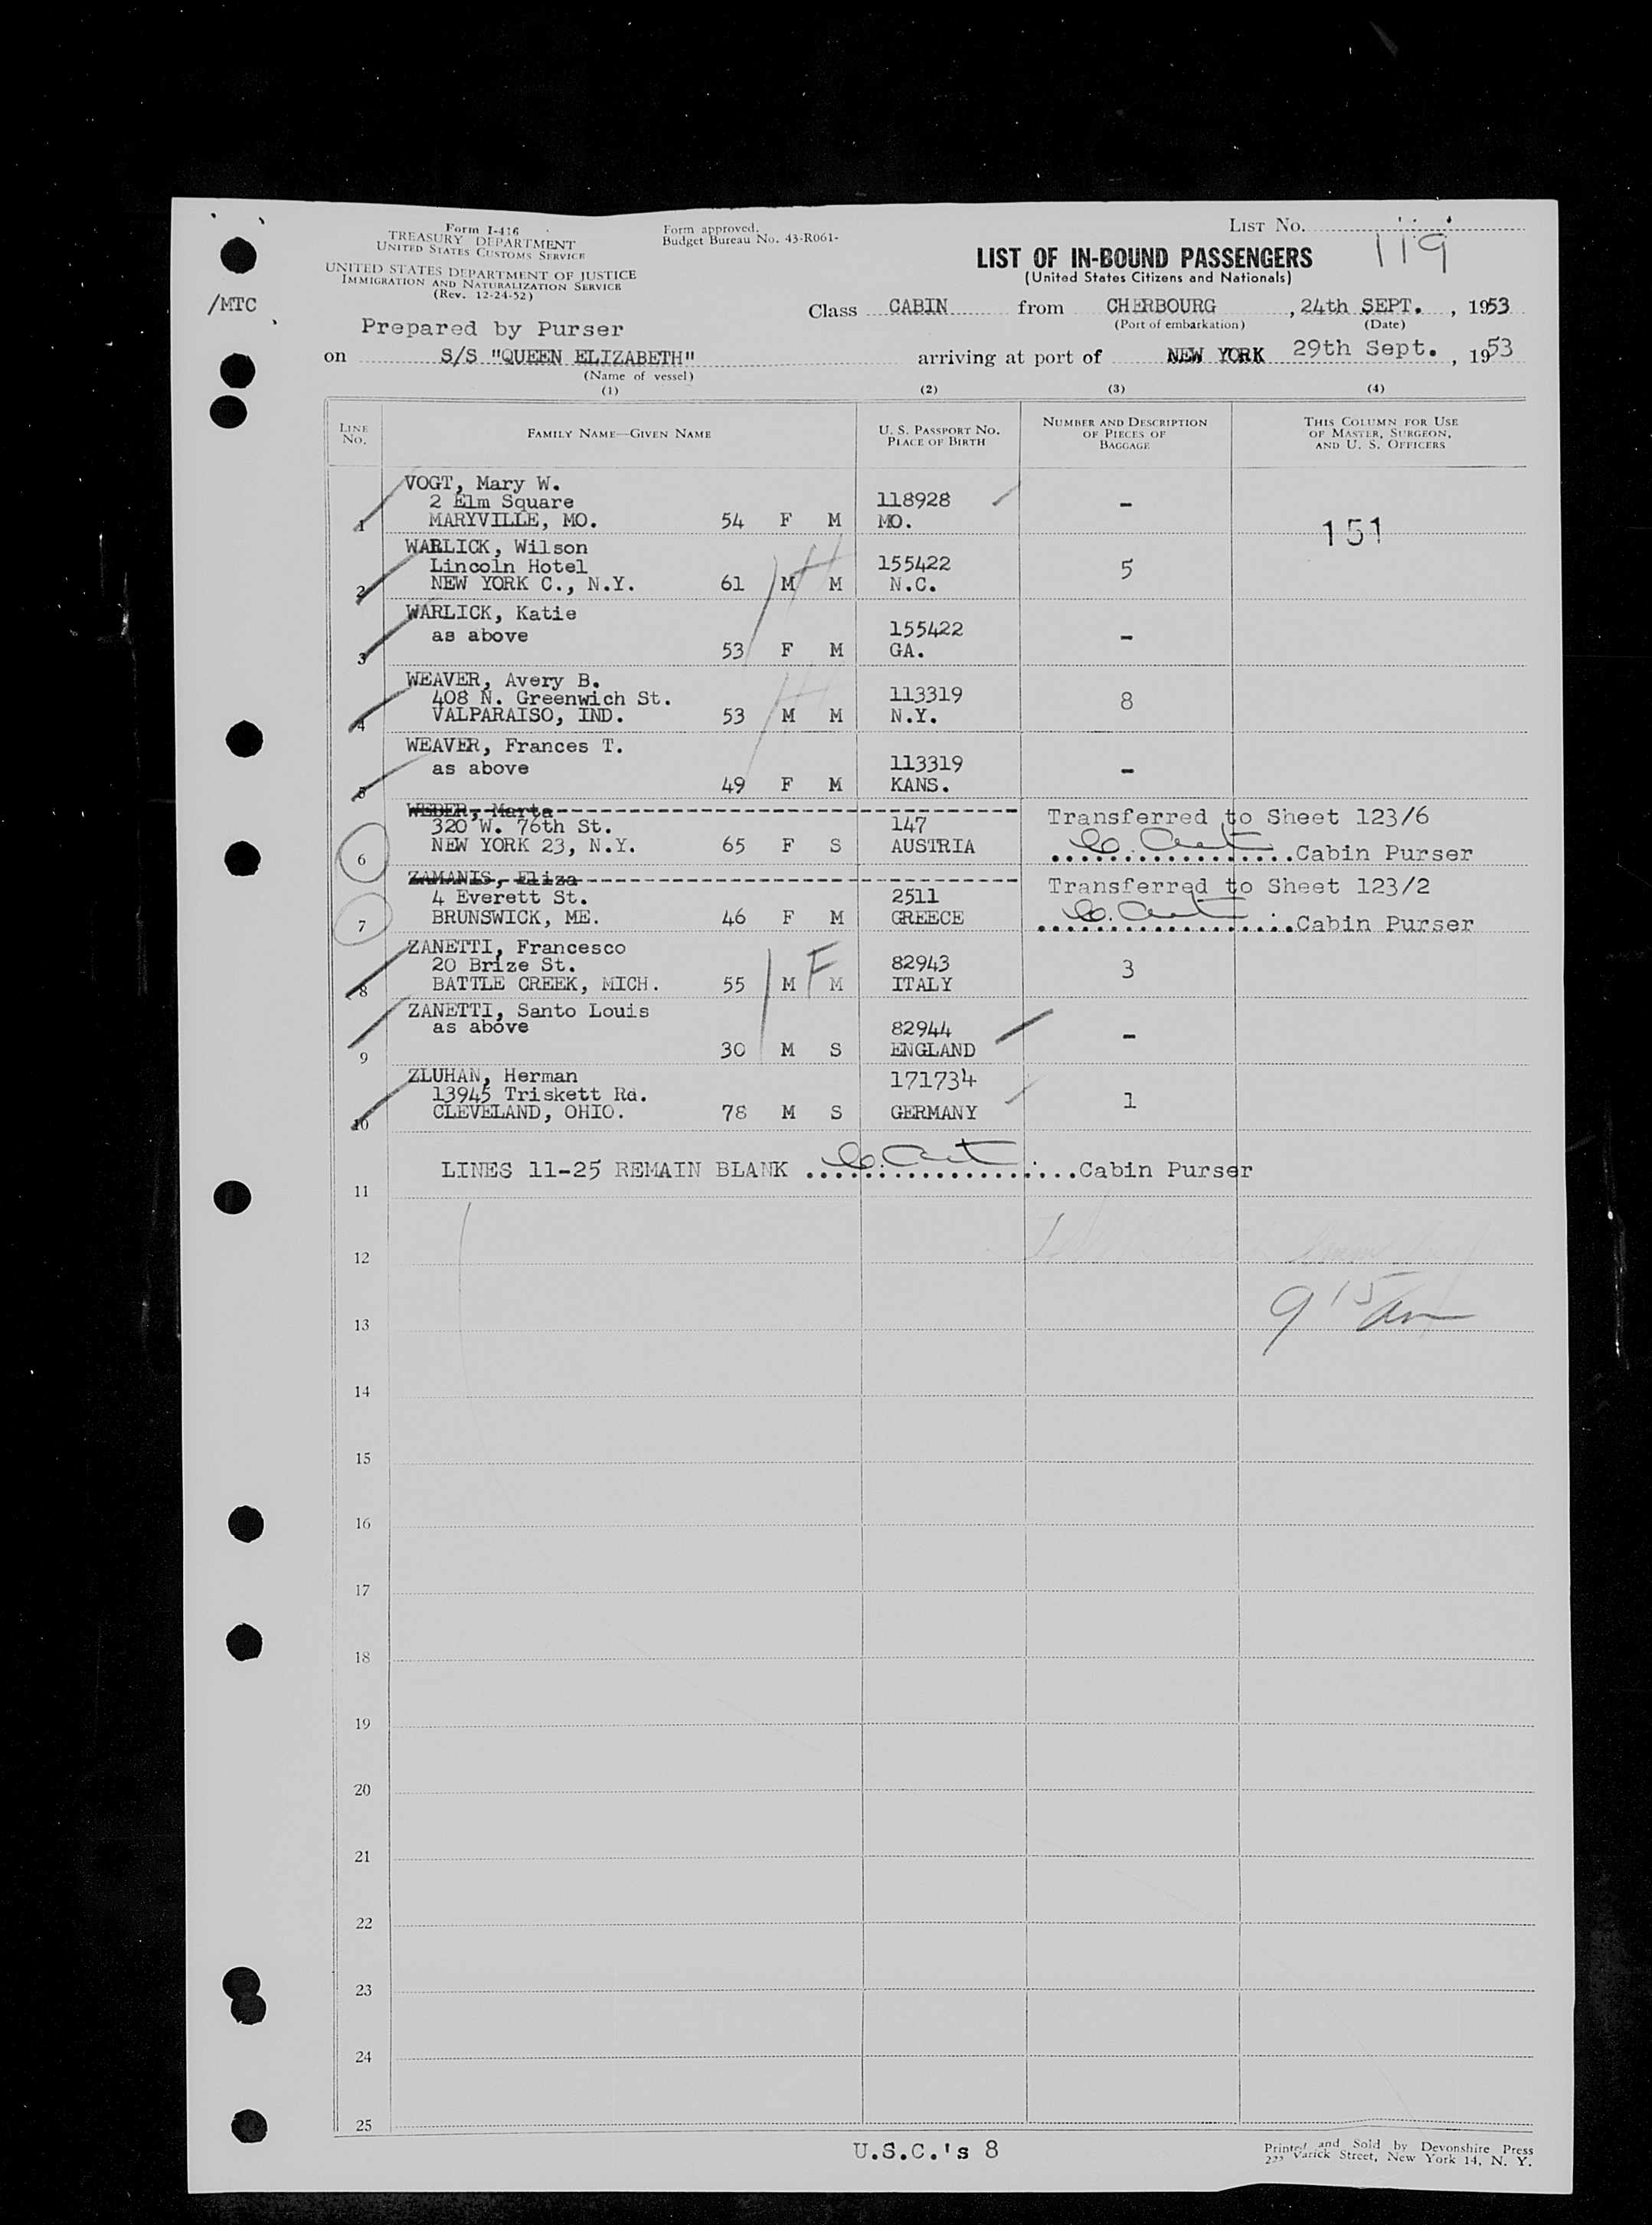 Form I-416
TREASURY DEPARTMENT
UNITED STATES CUSTOMS SERVICE
UNITED STATES DEPARTMENT OF JUSTICE
IMMIGRATION AND NATURALIZATION SERVICE
(Rev. 12-24-52)
Form approved.
Budget Bureau No. 43-R061-
LIST No.
119
LIST OF IN-BOUND PASSENGERS
(United States Citizens and Nationals)
/MTC
Class CABIN from CHERBOURG, 24th SEPT., 1953
(Port of embarkation) (Date)
Prepared by Purser
on S/S "QUEEN ELIZABETH" arriving at port of NEW YORK 29th Sept., 1953
(Name of vessel)
(1) (2) (3) (4)
LINE No. FAMILY NAME—GIVEN NAME U. S. PASSPORT No. PLACE OF BIRTH NUMBER AND DESCRIPTION OF PIECES OF BAGGAGE THIS COLUMN FOR USE OF MASTER, SURGEON, AND U. S. OFFICERS
VOGT, Mary W.
2 Elm Square 118928 -
1 MARYVILLE, MO. 54 F M MO. 151
WARLICK, Wilson
Lincoln Hotel 155422 5
2 NEW YORK C., N.Y. 61 M M N.C.
H
WARLICK, Katie
as above 155422 -
3 53 F M GA.
WEAVER, Avery B.
408 N. Greenwich St. 113319 8
4 VALPARAISO, IND. 53 M M N.Y.
H
WEAVER, Frances T.
as above 113319 -
5 49 F M KANS.
WEBER, Marta
320 W. 76th St. 147 Transferred to Sheet 123/6
6 NEW YORK 23, N.Y. 65 F S AUSTRIA Cabin Purser
ZAMANIS, Eliza
4 Everett St. 2511 Transferred to Sheet 123/2
7 BRUNSWICK, ME. 46 F M GREECE Cabin Purser
ZANETTI, Francesco
20 Brize St. 82943 3
8 BATTLE CREEK, MICH. 55 M M ITALY
F
ZANETTI, Santo Louis
as above 82944 -
9 30 M S ENGLAND
ZLUHAN, Herman
13945 Triskett Rd. 171734 1
10 CLEVELAND, OHIO. 78 M S GERMANY
LINES 11-25 REMAIN BLANK Cabin Purser
11
12
9 15 am
13
14
15
16
17
18
19
20
21
22
23
24
25
U.S.C.'s 8
Printed and Sold by Devonshire Press
225 Varick Street, New York 14, N. Y.